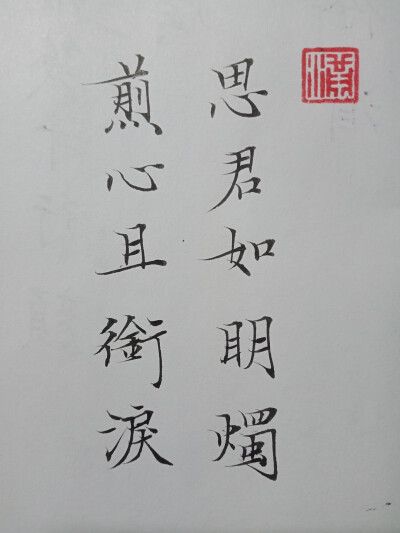 思君如明燭
煎心且銜淚